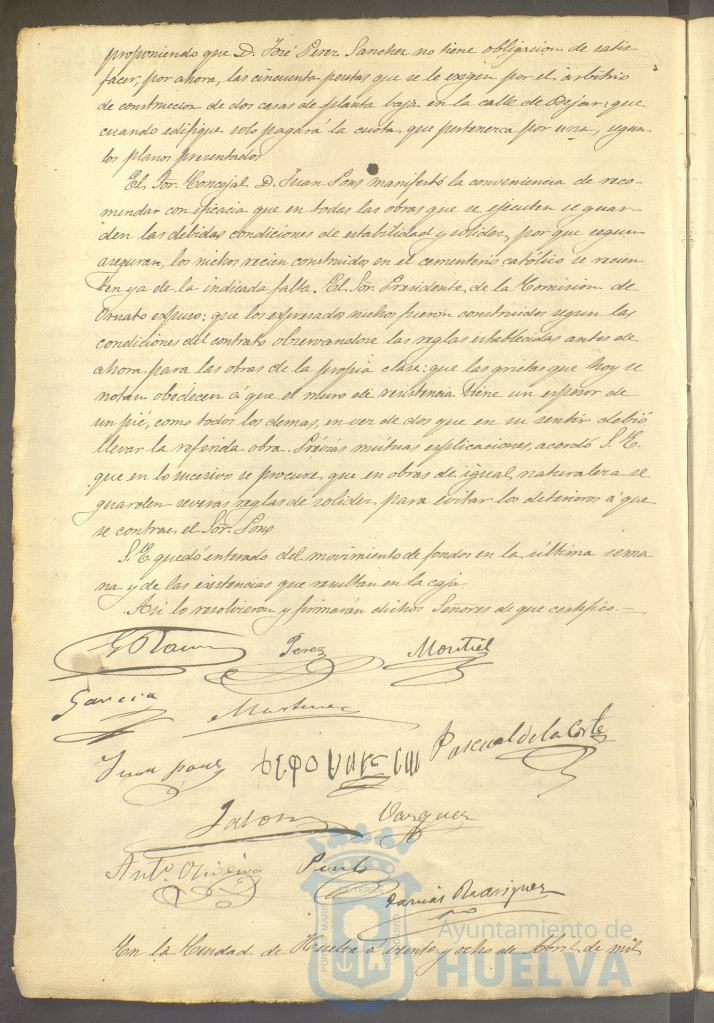 proponiendo que D. José Perez Sanchez no tiene obligacion de satis-
facer, por ahora, las cincuenta pesetas que se le exigen por el arbitrio
de construccion de dos casas de planta baja en la calle de Bejar: que
cuando edifique solo pagará la cuota que pertenezca por una, segun
los planos presentados
El Sor. Concejal D. Juan Pons manifestó la conveniencia de reco-
mendar con eficacia que en todas las obras que se ejecuten se guar-
den las debidas condiciones de estabilidad y solidez, por que segun
aseguran, los nichos recien construidos en el cementerio católico se recien
ten ya de la indicada falta. El Sor. Presidente de la Comision de
Ornato expuso: que los expresados nichos fueron construidos segun las
condiciones del contrato observandose las reglas establecidas antes de
ahora para las obras de la propia clase: que las grietas que hoy se
notan obedecen á que el muro de resistencia tiene un espesor de
un pié, como todos los demas, en vez de dos que en su sentir debió
llevar la referida obra. Prévias mútuas esplicaciones, acordó S. E.
que en lo sucesivo se procure que en obras de igual naturaleza se
guarden severas reglas de solidez para evitar los deterioros á que
se contrae el Sor. Pons
S. E. quedó enterado del movimiento de fondos en la última sema
na y de las existencias que resultan en la caja
Asi lo resolvieron y firmarán dichos Señores de que certifico.—
Perez Montiel
Garcia Martinez
Juan Pons Pascual de la Corte
Jalon Vazquez
Antº Oliveira Pinto
Rodriguez
Ayuntamiento de
HUELVA
En la Ciudad de Huelva á veinte y ocho de Abril de mil